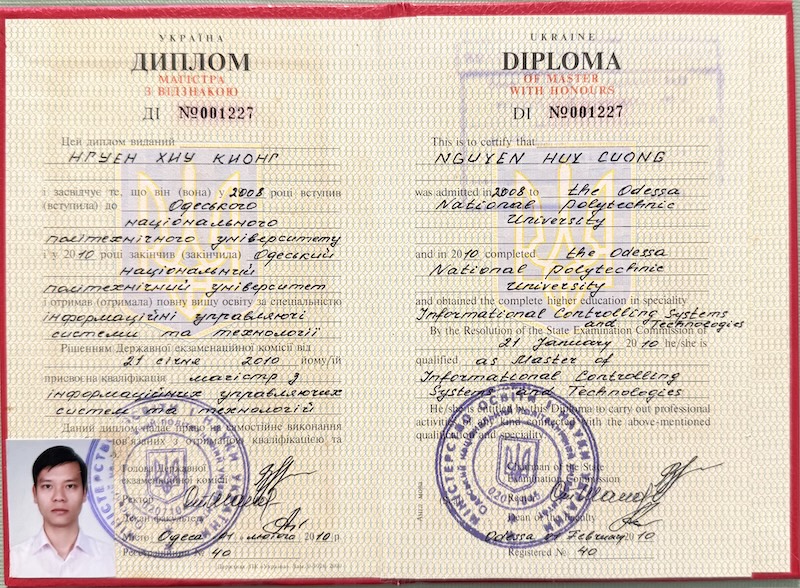 УКРАЇНА
ДИПЛОМ
МАГІСТРА
З ВІДЗНАКОЮ
ДІ №001227
Цей диплом виданий
НГУЕН ХИУ КИОНГ
і засвідчує те, що він (вона) у 2008 році вступив
(вступила) до Одеського
національного
політехнічного університету
і у 2010 році закінчив (закінчила) Одеський
національний
політехнічний університет
і отримав (отримала) повну вищу освіту за спеціальністю
інформаційні управляючі
системи та технології
Рішенням Державної екзаменаційної комісії від
21 січня 2010 йому/їй
присвоєна кваліфікація магістр з
інформаційних управляючих
систем та технологій
Даний диплом надає право на самостійне виконання
з отриманою кваліфікацією та
Голова Державної
екзаменаційної комісії
Ректор
Декан факультету
Місто Одеса 01 лютого 2010 р
Реєстраційний № 40
UKRAINE
DIPLOMA
OF MASTER
WITH HONOURS
DI №001227
This is to certify that
NGUYEN HUY CUONG
was admitted in 2008 to the Odessa
National polytechnic
University
and in 2010 completed the Odessa
National polytechnic
University
and obtained the complete higher education in speciality
Informational Controlling Systems
and Technologies
By the Resolution of the State Examination Commission of
21 January 2010 he/she is
qualified as Master of
Informational Controlling
Systems and Technologies
He/she is entitled by this Diploma to carry out professional
activities of any kind connected with the above-mentioned
qualification and speciality.
Chairman of the State
Examination Commission
Rector
Dean of the faculty
Odessa 01 February 2010
Registered № 40
МІНІСТЕРСТВО ОСВІТИ І НАУКИ УКРАЇНИ